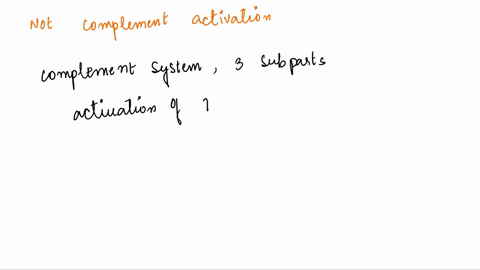 Not complement activation
complement system, 3 subparts
activation of 1